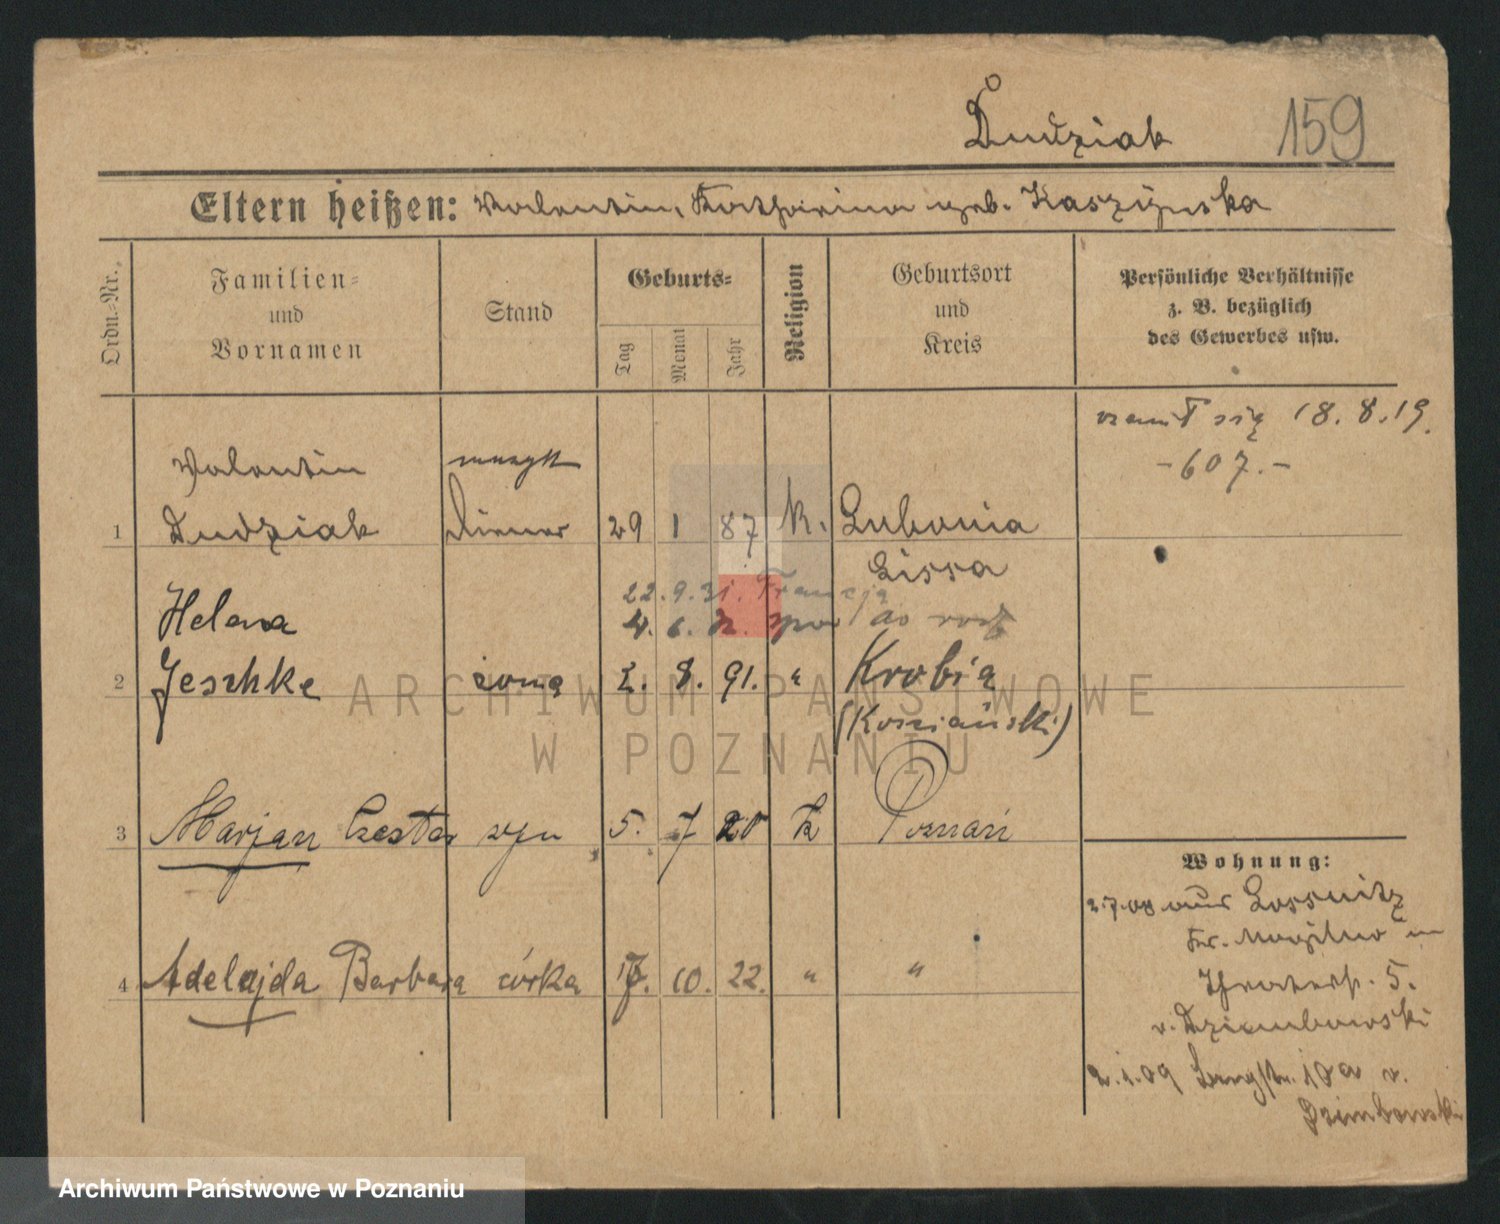 Dudziak 159
Eltern heißen: Valentin, Katharina geb. Kaszyńska
Ordn.-Nr.
Familien-
und
Vornamen
Stand
Geburts-
Tag
Monat
Jahr
Religion
Geburtsort
und
Kreis
Persönliche Verhältnisse
z. B. bezüglich
des Gewerbes usw.
się 18.8.19.
-607.-
Valentin
1 Dudziak Diener 29 1 87 k. Lubonia
Lissa
22.9.31. Francja
Helena 4. 6.
2 Jeschke żona 2. 8. 91. " Krobia
(Kościański)
3 Marjan Czesław syn 5. 7 20 k Poznań
4 Adelajda Barbara córka 17. 10. 22. " "
Wohnung:
2.7.08 aus Lossnitz
Kr. Mogilno in
Theaterstr. 5.
v. Dziembowski
2.1.09 Langstr. 10a v.
Dzimbowski
ARCHIWUM PAŃSTWOWE
W POZNANIU
Archiwum Państwowe w Poznaniu